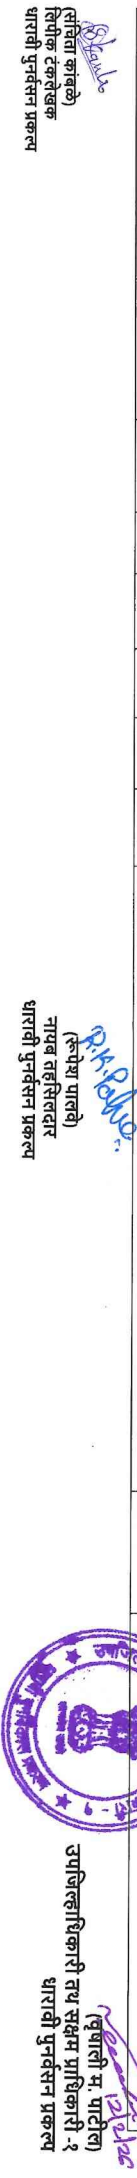 (संचिता कांबळे)
लिपीक टंकलेखक
धारावी पुनर्वसन प्रकल्प
R.K.Palve
(रूपेश पालवे)
नायब तहसिलदार
धारावी पुनर्वसन प्रकल्प
12/2/26
(वृषाली म. पाटील)
उपजिल्हाधिकारी तथा सक्षम प्राधिकारी -१
धारावी पुनर्वसन प्रकल्प